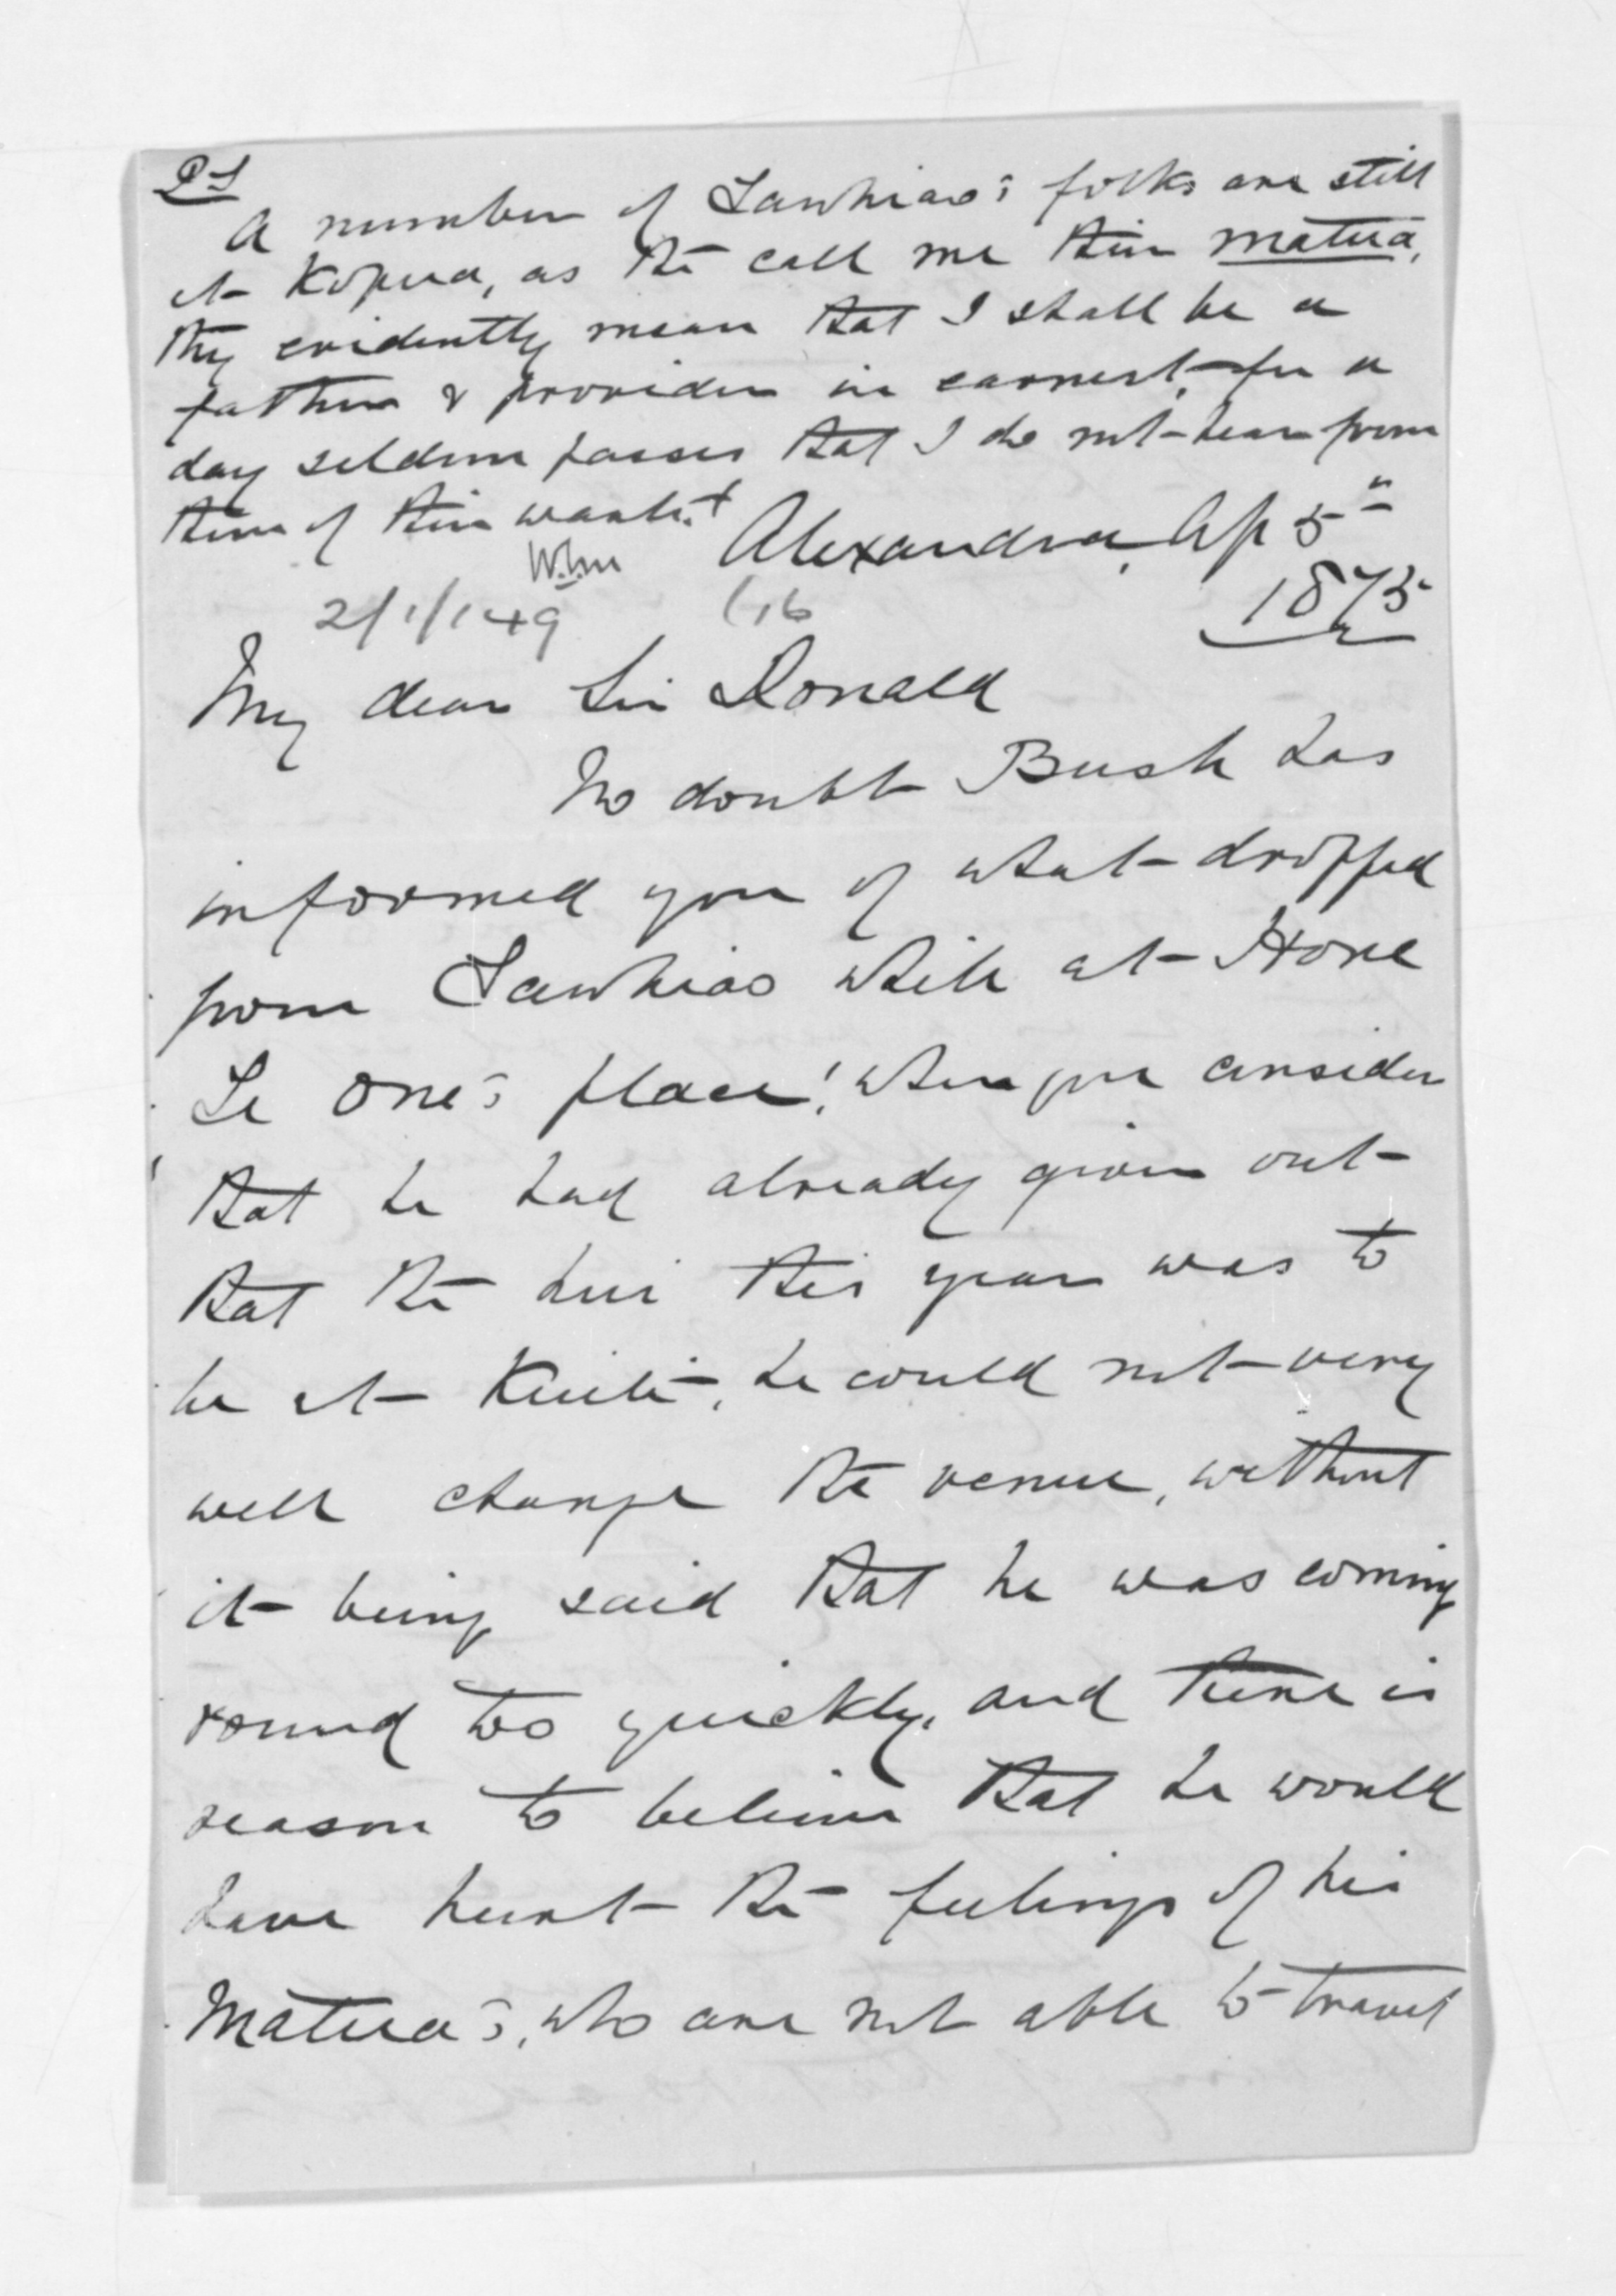 PS
A number of Tawhiao's folks are still
at Kopua, as the call me their matua,
they evidently mean that I shall be a
father & provider in earnest, for a
day seldom passes that I do not hear from
them of their wants. +
W.G.M
Alexandra, Ap 5"
1875
2/1/149
(16
My dear Sir Donald
No doubt Bush has
informed you of what dropped
from Tawhiao while at Hone
Te One's place! when you consider
that he had already given out
that the hui this year was to
be at Kuiti, he could not very
well change the venue, without
it being said that he was coming
round too quickly, and there is
reason to believe that he would
have hurt the feelings of his
Matua's, who are not able to travel